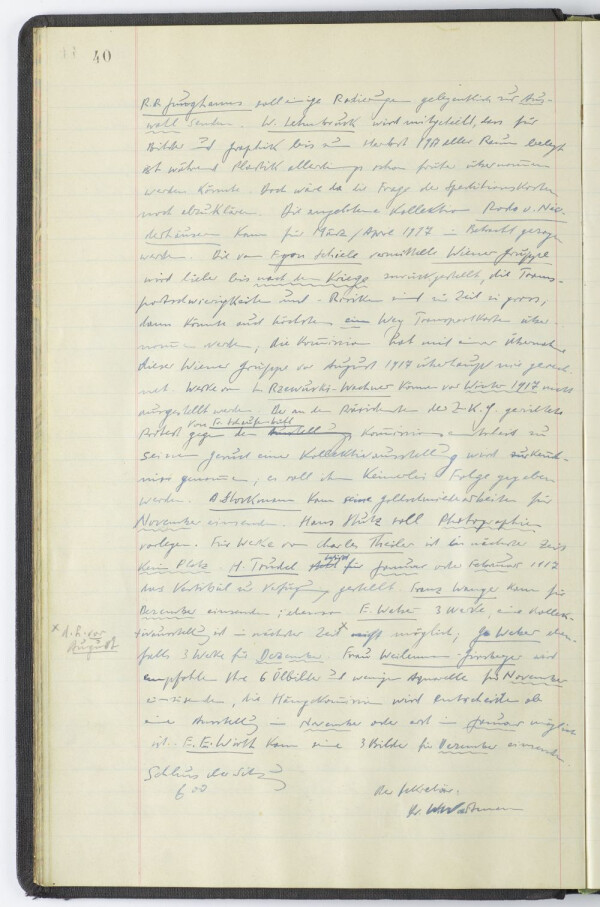 40
R. R. Junghanns soll einige Radierungen gelegentlich zur Aus-
wahl senden. W. Lehmbruck wird mitgeteilt, dass für
Bilder und Graphik bis zum Herbst 1917 aller Raum belegt
ist während Plastik allerdings schon früher übernommen
werden könnte. Doch wäre da die Frage der Speditionskosten
noch abzuklären. Die angebotene Kollektion Roda v. Nie-
derhäusern kann für März/April 1917 in Betracht gezogen
werden. Die von Egon Schiele vermittelte Wiener Gruppe
wird lieber bis nach dem Kriege zurückgestellt, die Trans-
portschwierigkeiten und -Risiken sind zur Zeit zu gross,
dann könnte auch höchstens ein Weg Transportkosten über-
nommen werden; die Kommission hat mit einer Übernahme
dieser Wiener Gruppe vor August 1917 überhaupt nie gerech-
net. Werke von Rzewuski-Wachner können vor Winter 1917 nicht
ausgestellt werden. Der an den Präsidenten der Z.K.G. gerichtete
Protest von gegen den Kommissionsentscheid zu
seinem Gesuch einer Kollektivausstellung wird zur Kennt-
nis genommen; es soll ihm keinerlei Folge gegeben
werden. A. Stockmann kann seine Goldschmiedarbeiten für
November einsenden. Hans Stutz soll Photographien
vorlegen. Für Werke von Charles Theiler ist in nächster Zeit
kein Platz. H. Trudel wird für Januar oder Februar 1917
das Vestibül zur Verfügung gestellt. Franz Wanger kann für
Dezember einsenden; ebenso F. Weber 3 Werke, eine Kollek-
tivausstellung ist in nächster Zeit × nicht möglich; Weber eben-
× d. h. vor
August
falls 3 Werke für Dezember. Frau
empfohlen ihre 6 Ölbilder und wenige Aquarelle für November
einzusenden, die Hängekommission wird entscheiden ob
eine Ausstellung im November oder erst im Januar möglich
ist. E. E. Wirth kann seine 3 Bilder für Dezember einsenden.
Schluss der Sitzung
6 00
Der Sekretär:
Dr. W. Wartmann